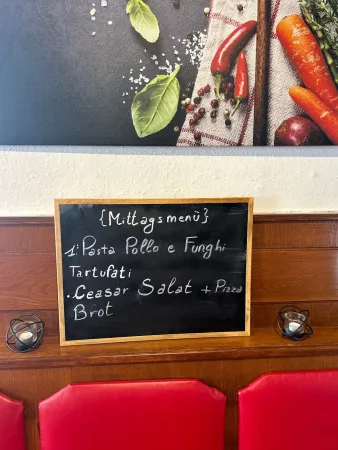 {Mittagsmenü}
1: Pasta Pollo e Funghi
Tartufati
. Ceasar Salat + Pizza
Brot